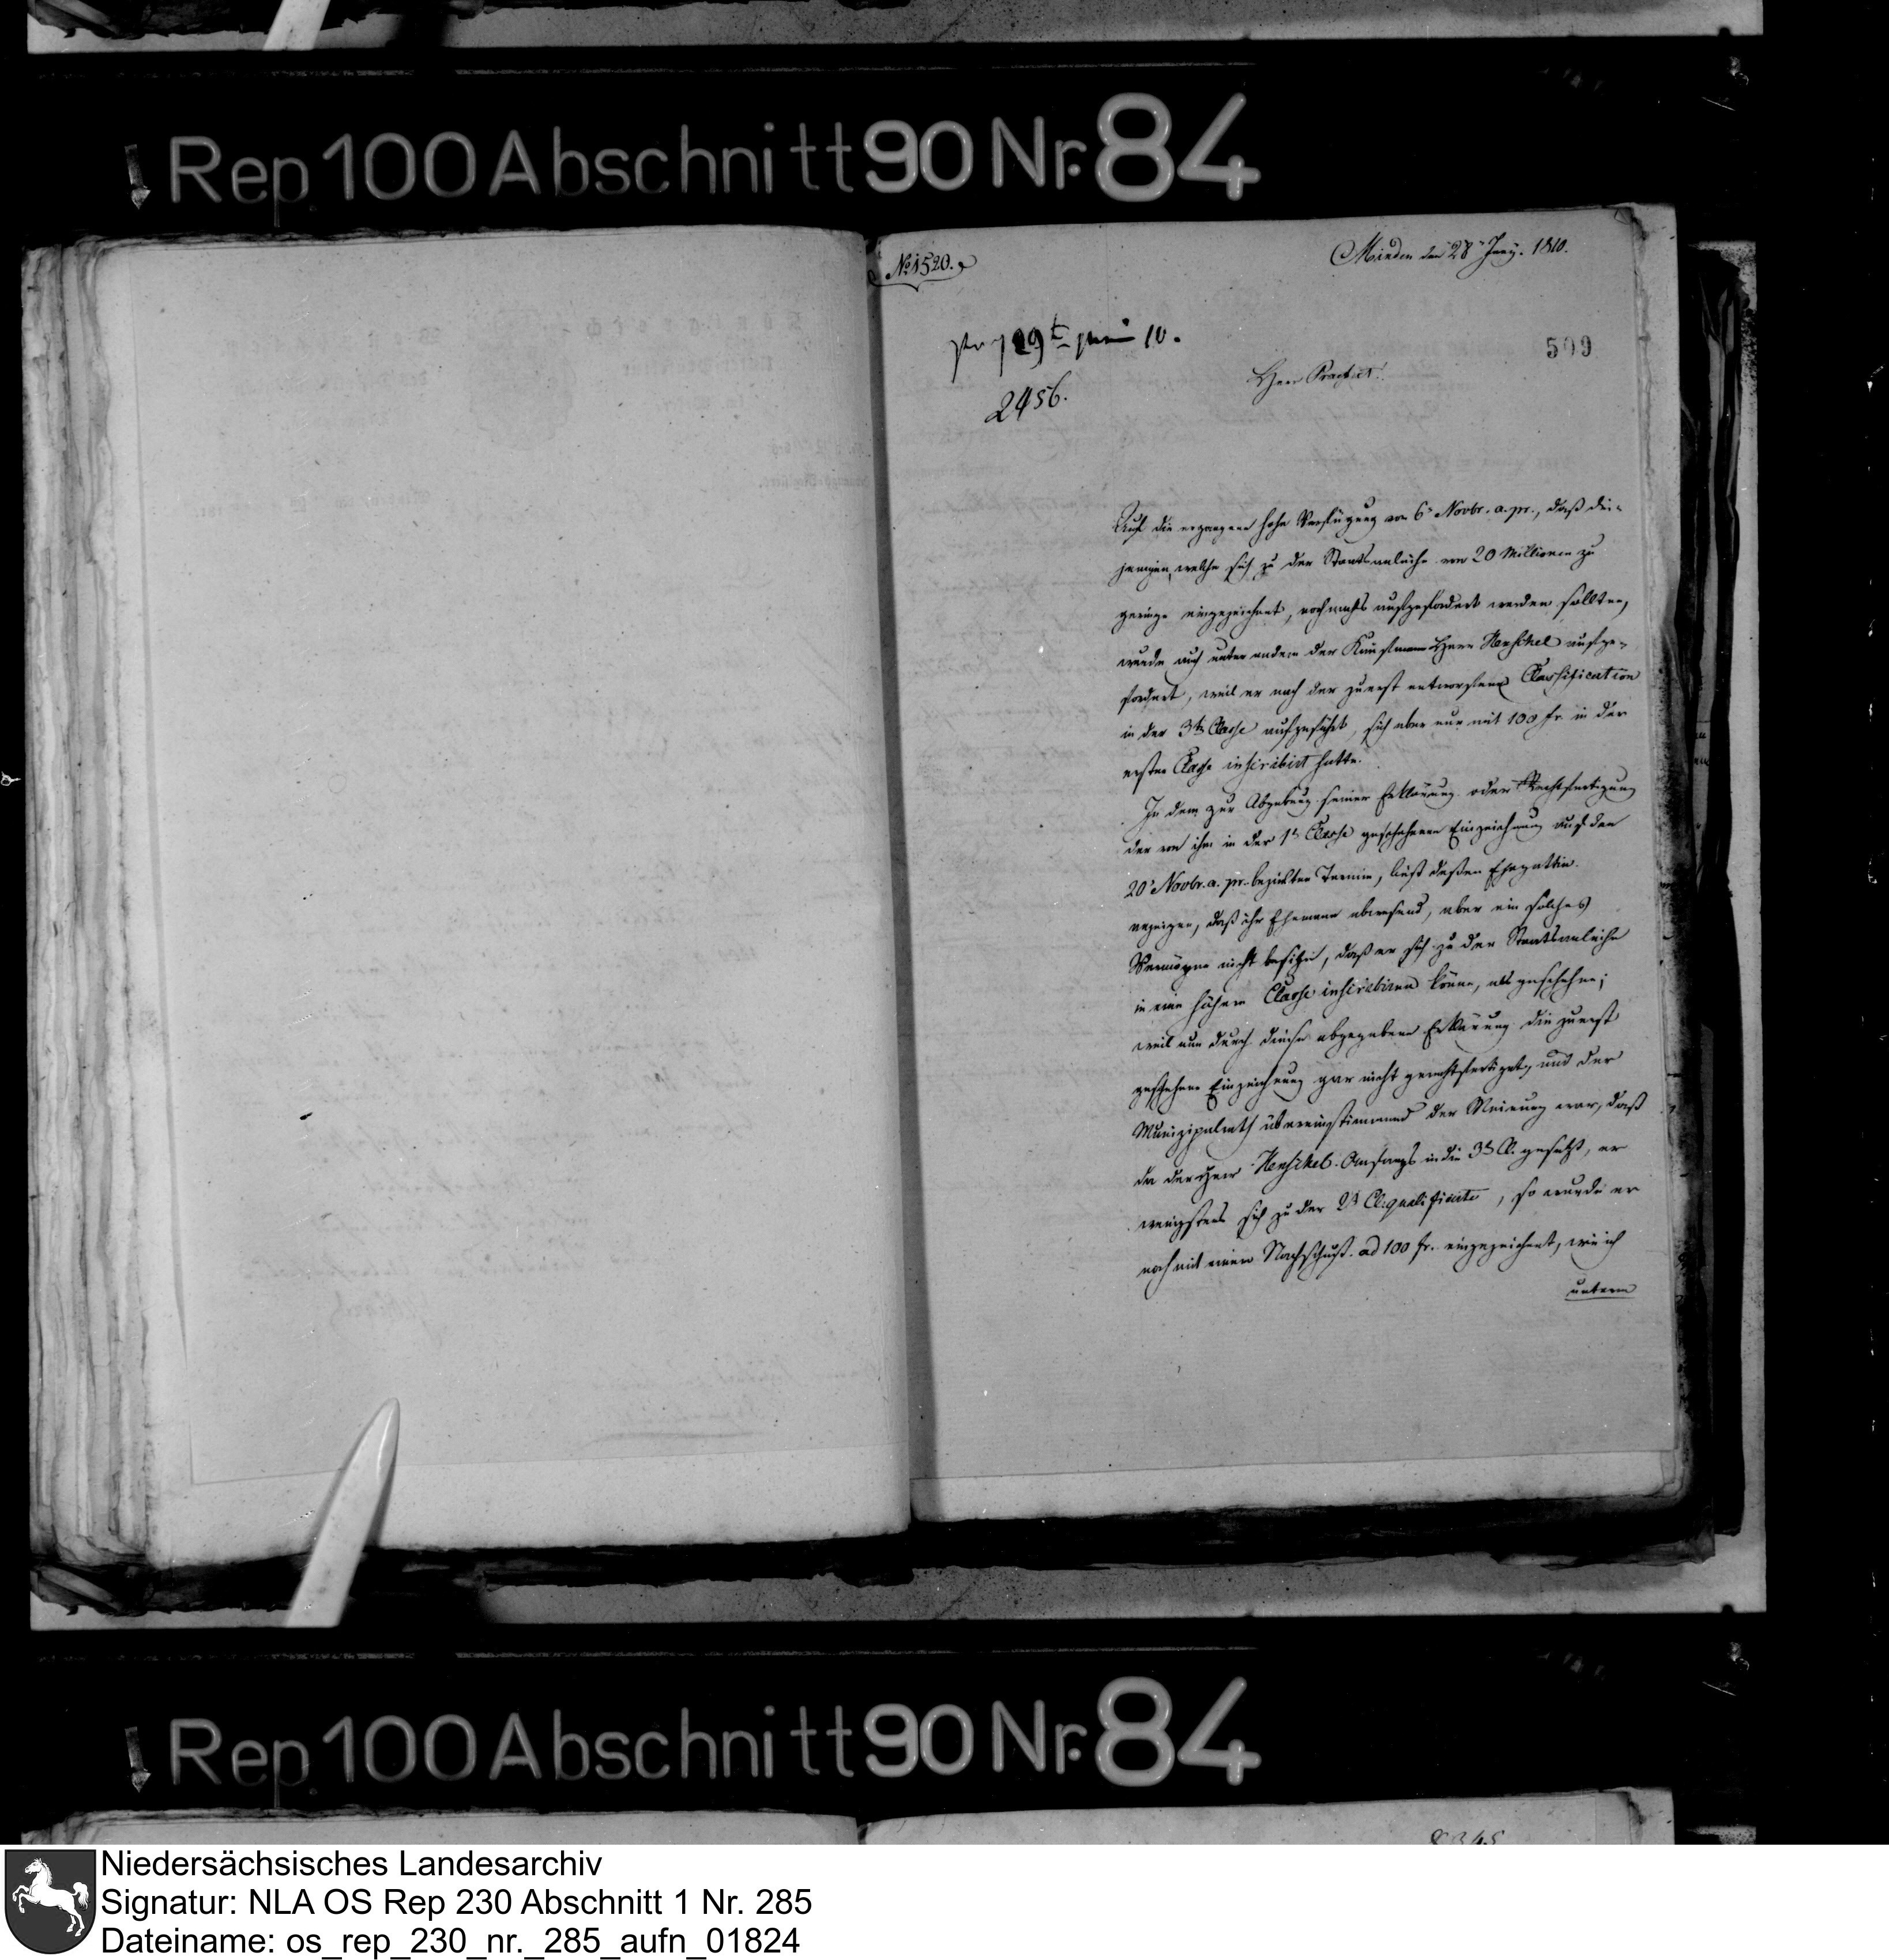 Rep 100 Abschnitt 90 Nr. 84
No. 1520.
Minden den 28 Juny. 1810.
29t Juni 10.
2456.
509
Herr Praefect!
Auf die ergangene hohe Verfügung vom 6r Novbr. a. pr., daß die-
jenigen, welche sich zu der Staatsanleihe von 20 Millionen zu
geringe eingezeichnet, nochmals aufgefordert werden sollten,
wurde auch unter andern der Kaufmann Herr Henschel aufge-
fordert, weil er nach der zuerst entworfenen Classification
in der 3ten Classe aufgeführt, sich aber nur mit 100 fr. in der
ersten Classe inscribirt hatte.
In dem zur Abgebung seiner Erklärung oder Rechtfertigung
der von ihm in der 1t Classe geschehenen Einzeichnung auf den
20r Novbr. a. pr. bezielten Termin, ließ deßen Ehegattin
anzeigen, daß ihr Ehemann abwesend, aber ein solches
Vermögen nicht besitze, daß er sich zu der Staatsanleihe
in eine höhere Classe inscribiren könne, als geschehen;
weil nun durch diese abgegebene Erklärung die zuerst
geschehene Einzeichnung gar nicht gerechtfertiget, und der
Munizipalrath übereinstimmend der Meinung war, daß
da der Herr Henschel Anfangs in die 3t Cl. gesetzt, er
wenigstens sich zu der 2t Cl. qualificirte, so wurde er
noch mit einem Nachschuß ad 100 fr. eingezeichnet, wie ich
unterm
Rep 100 Abschnitt 90 Nr. 84
Niedersächsisches Landesarchiv
Signatur: NLA OS Rep 230 Abschnitt 1 Nr. 285
Dateiname: os_rep_230_nr._285_aufn_01824